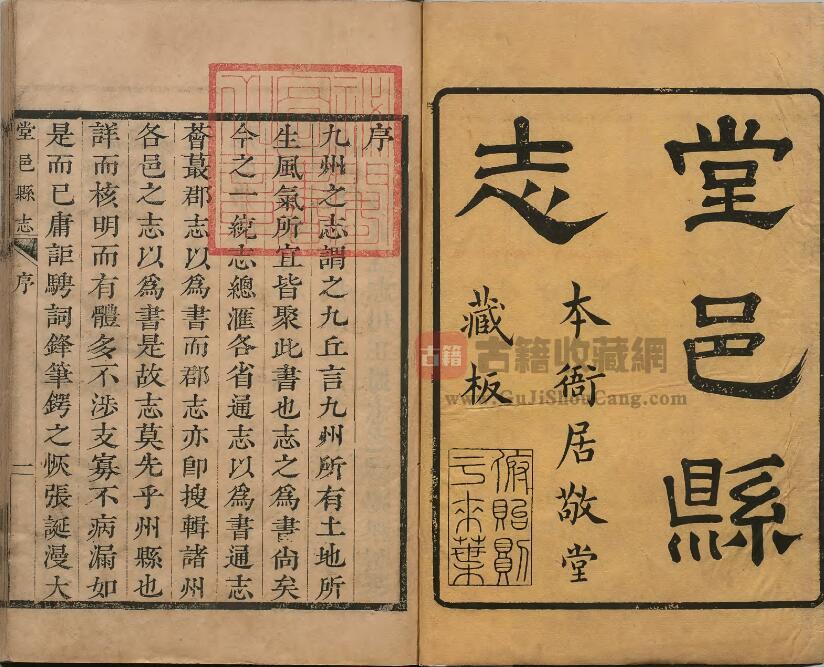 堂邑縣
志
本衙居敬堂
藏板
序
九州之志謂之九丘言九州所有土地所
生風氣所宜皆聚此書也志之為書尚矣
今之一統志總滙各省通志以為書通志
薈蕞郡志以為書而郡志亦卽搜輯諸州
各邑之志以為書是故志莫先乎州縣也
詳而核明而有體多不涉支寡不病漏如
是而已庸詎騁詞鋒筆鍔之恢張誕漫大
堂邑縣志
序
二
古籍
古籍收藏網
www.GuJiShouCang.com